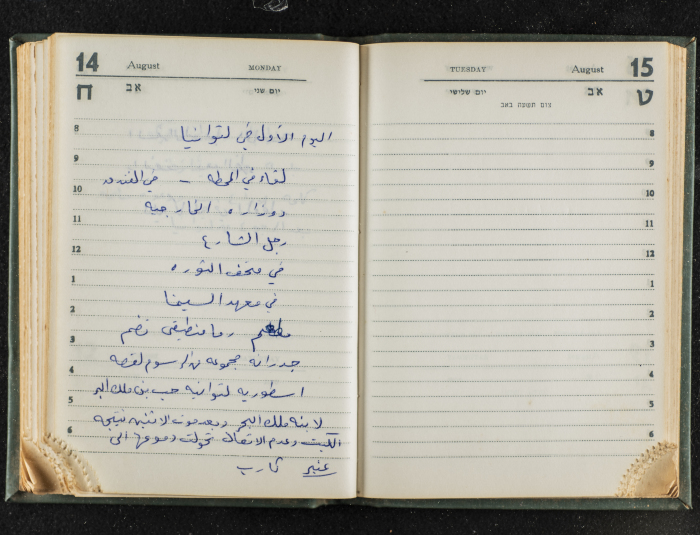 14 August MONDAY
ח אב יום שני
8
اليوم الأول في لتوانيا
9
لقاء في المحطه - في الفندق
10
ووزاره الخارجيه
11
رجل الشارع
12
في متحف الثوره
1
في معهد السينما
2
مطعم رومنطيقي تضم
3
جدرانه مجموعه من الرسوم لقصه
4
اسطوريه لتوانيه حب بن ملك البر
5
لابنه ملك البحر وبعد موت الاثنين نتيجه
6
الكبت وعدم الاتصال تحولت دموعها الى
عنبر كارب
TUESDAY August 15
יום שלישי אב ט
צום תשעה באב
8
9
10
11
12
1
2
3
4
5
6